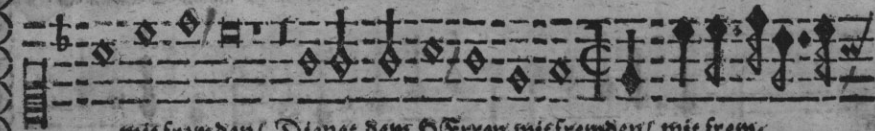 mit frewden/ Dienet dem HErren mit frewden/ mit frew-